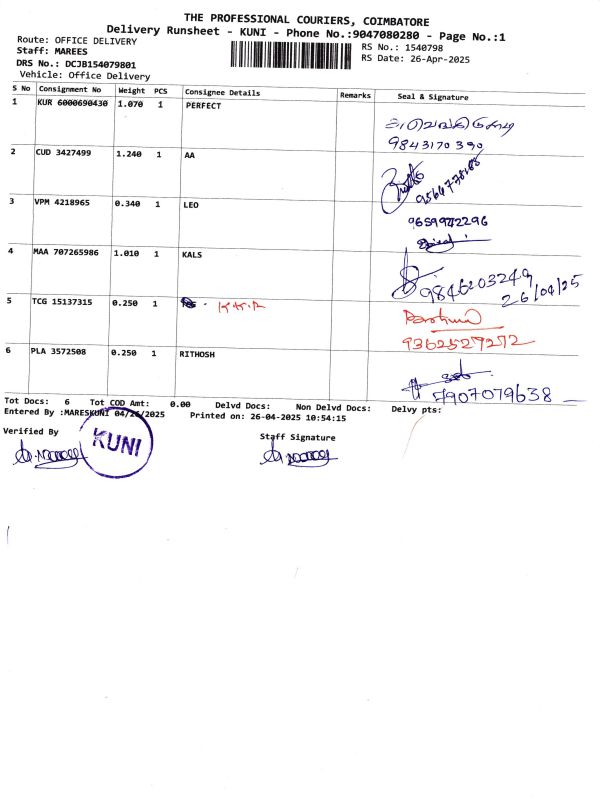 THE PROFESSIONAL COURIERS, COIMBATORE
Delivery Runsheet - KUNI - Phone No.:9047080280 - Page No.:1
Route: OFFICE DELIVERY
RS No.: 1540798
Staff: MAREES
RS Date: 26-Apr-2025
DRS No.: DCJB154079801
Vehicle: Office Delivery
S No Consignment No Weight PCS Consignee Details Remarks Seal & Signature
1 KUR 6000690430 1.070 1 PERFECT
9843170390
2 CUD 3427499 1.240 1 AA
3 VPM 4218965 0.340 1 LEO
9659942296
4 MAA 707265986 1.010 1 KALS
9846203249
26/04/25
5 TCG 15137315 0.250 1 K.K.R
9362527272
6 PLA 3572508 0.250 1 RITHOSH
7907079638
Tot Docs: 6 Tot COD Amt: 0.00 Delvd Docs: Non Delvd Docs: Delvy pts:
Entered By :MARESKUNI 04/26/2025 Printed on: 26-04-2025 10:54:15
Verified By
Staff Signature
KUNI